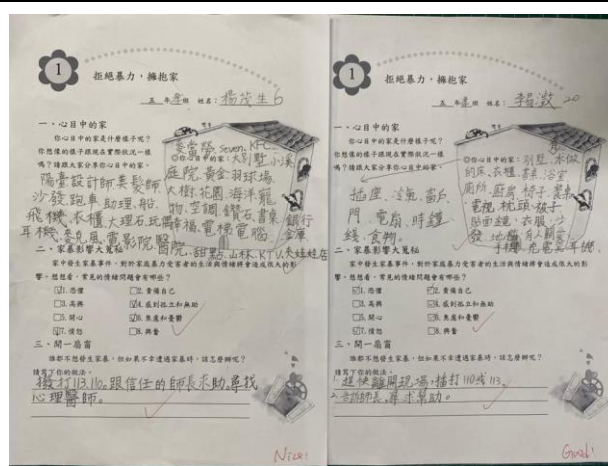 1
拒絕暴力，擁抱家
五 年 孝 班 姓名：楊茂生 6
一、心目中的家
你心目中的家是什麼樣子呢？
你想像的樣子跟現在實際狀況一樣
嗎？請跟大家分享你心目中的家。
麥當勞, Seven, KFC
◎你心目中的家：大別墅、小溪
庭院、黃金羽球場、
大樹、花園、海洋寵
物、空調、鑽石、書桌
陽臺、設計師、美髮師、
沙發、跑車、助理、船、
飛機、衣櫃、大理石、玩偶
幸福、電梯、電腦、
銀行
金庫
耳機、麥克風、電影院、醫院、甜點、山林、KTV、夾娃娃店
二、家暴影響大蒐秘
家中發生家暴事件，對於家庭暴力受害者的生活與情緒將會造成很大的影
響。想想看，常見的情緒問題會有哪些？
1.恐懼
2.責備自己
3.高興
4.感到孤立和無助
5.開心
6.焦慮和憂鬱
7.憤怒
8.興奮
三、開一扇窗
誰都不想發生家暴，但如果不幸遭遇家暴時，該怎麼辦呢？
請寫下你的做法。
撥打113、110。跟信任的師長求助、尋找
心理醫師。
Nice!
1
拒絕暴力，擁抱家
五 年 班 姓名： 20
一、心目中的家
你心目中的家是什麼樣子呢？
你想像的樣子跟現在實際狀況一樣
嗎？請跟大家分享你心目中的家。
◎你心目中的家：別墅、
的床、衣櫃、浴室
廁所、廚房、椅子、餐桌
電視、枕頭、被子
衣服、沙
發、地
插座、冷氣、窗戶
門、電扇、時鐘
錢、食物。
手機、耳機、
二、家暴影響大蒐秘
家中發生家暴事件，對於家庭暴力受害者的生活與情緒將會造成很大的影
響。想想看，常見的情緒問題會有哪些？
1.恐懼
2.責備自己
3.高興
4.感到孤立和無助
5.開心
6.焦慮和憂鬱
7.憤怒
8.興奮
三、開一扇窗
誰都不想發生家暴，但如果不幸遭遇家暴時，該怎麼辦呢？
請寫下你的做法。
1.趕快離開現場，撥打110或113。
2.告訴師長，尋求幫助。
Good!